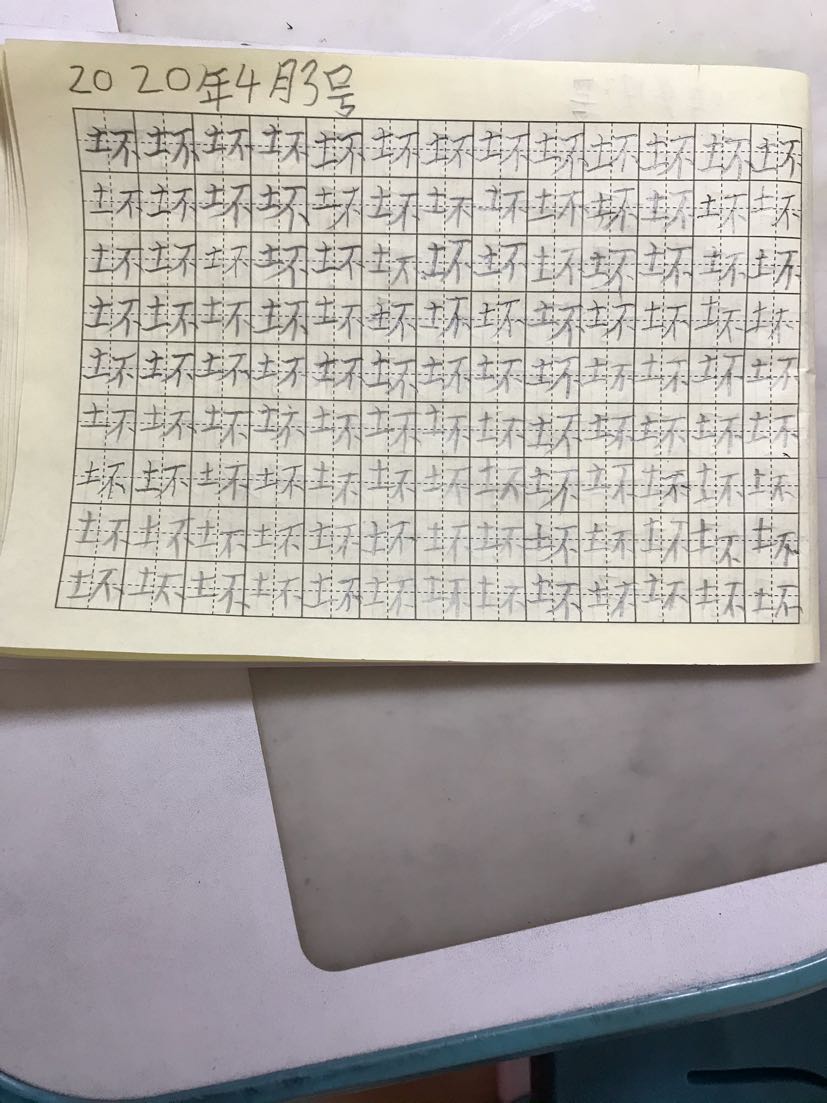 2020年4月3号
坏坏坏坏坏坏坏坏坏坏坏坏坏
坏坏坏坏坏坏坏坏坏坏坏坏坏
坏坏坏坏坏坏坏坏坏坏坏坏坏
坏坏坏坏坏坏坏坏坏坏坏坏坏
坏坏坏坏坏坏坏坏坏坏坏坏坏
坏坏坏坏坏坏坏坏坏坏坏坏坏
坏坏坏坏坏坏坏坏坏坏坏坏坏
坏坏坏坏坏坏坏坏坏坏坏坏坏
坏坏坏坏坏坏坏坏坏坏坏坏坏